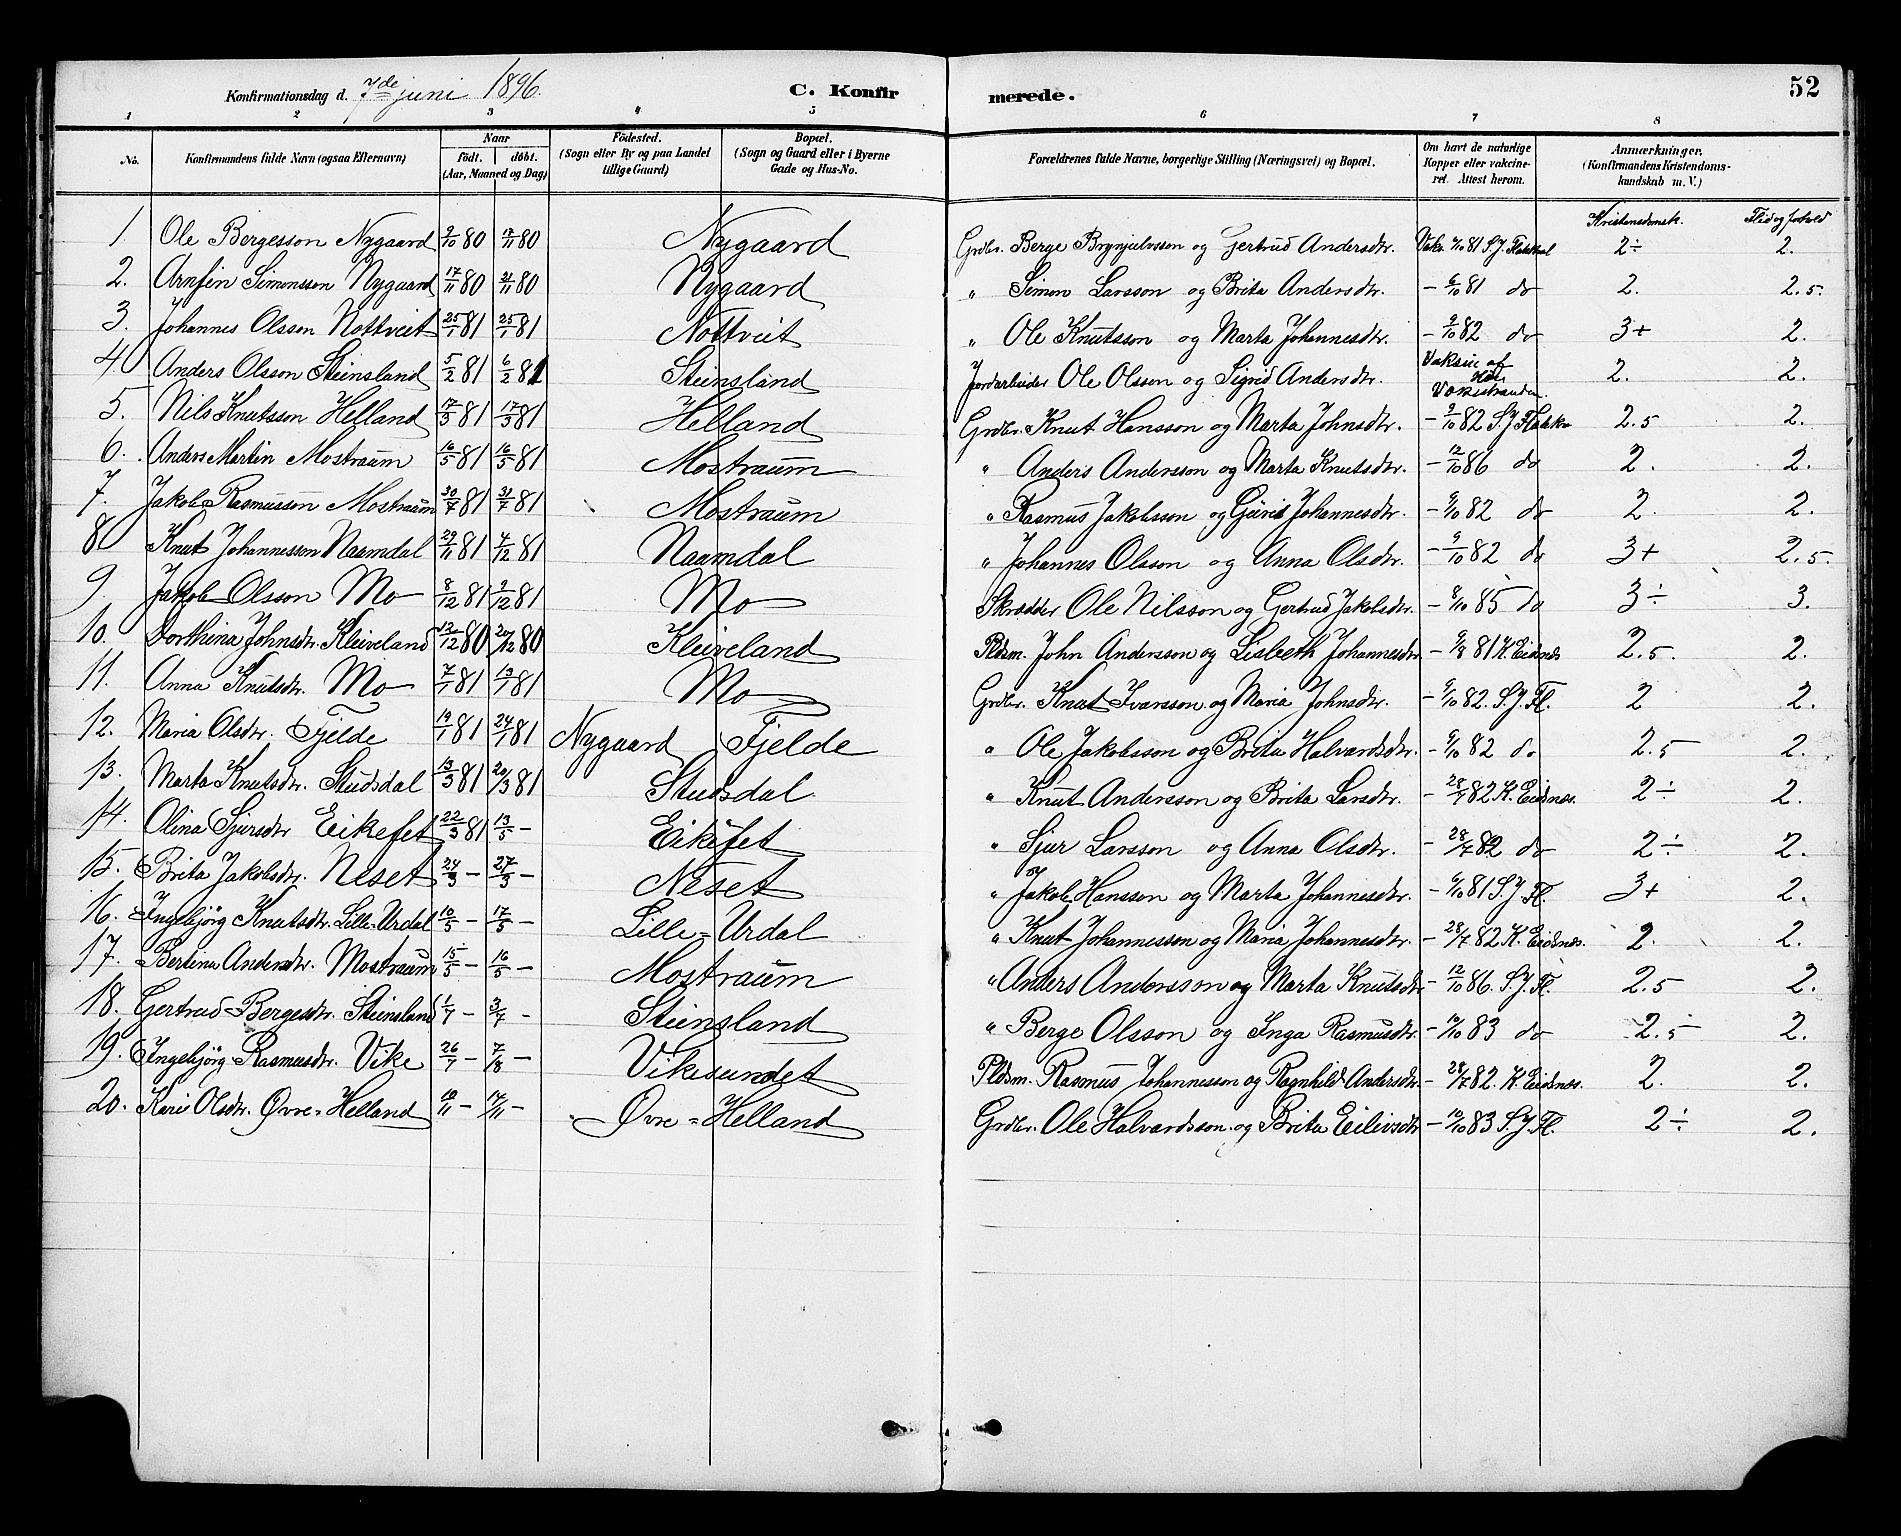 Konfirmationsdag d. 7de juni 1896. C. Konfirmerede. 52
1 2 3 4 5 6 7 8
No. Konfirmandens fulde Navn (ogsaa Efternavn) Naar födt. döbt. (Aar, Maaned og Dag) Födested. (Sogn eller By og paa Landet tillige Gaard) Bopæl. (Sogn og Gaard eller i Byerne Gade og Hus-No. Forældrenes fulde Navne, borgerlige Stilling (Næringsvei) og Bopæl. Om havt de naturlige Kopper eller vakcineret. Attest herom. Anmærkninger. (Konfirmandens Kristendomskundskab m. V.)
Kristendomsk. Flid og forhold
1. Ole Bergesson Nygaard 9/10 80 17/11 80 Nygaard Grdbr. Berge Brynjulvsson og Gertrud Andersdtr. Vak. 9/10 81 S. J. 2÷ 2.
2. Arnfin Simonsson Nygaard 17/11 80 21/11 80 Nygaard " Simon Larsson og Brita Andersdtr. - 6/10 81 do 2. 2.5.
3. Johannes Olsson Nottveit 25/1 81 25/1 81 Nottveit " Ole Knutsson og Marta Johannesdtr. - 9/10 82 do 3+ 2.
4 Anders Olsson Steinsland 5/2 81 6/2 81 Steinsland Jordarbeider Ole Olsson og Sigrid Andersdtr. Vaksin af 2. 2.
5. Nils Knutsson Helland 17/3 81 17/3 81 Helland Grdbr. Knut Hansson og Marta Johnsdtr. - 9/10 82 S J 2.5 2.
6. Anders Martin Mostraum 16/5 81 16/5 81 Mostraum " Anders Andersson og Marta Knutsdtr. - 12/10 86 do 2. 2.
7. Jakob Rasmusson Mostraum 30/7 81 31/7 81 Mostraum " Rasmus Jakobsson og Gurid Johannesdtr. - 9/10 82 do 2. 2.
8 Knut Johannesson Naamdal 29/11 81 4/12 81 Naamdal " Johannes Olsson og Anna Olsdtr. - 9/10 82 do 3+ 2.5.
9. Jakob Olsson Mo 8/12 81 9/12 81 Mo Skrædder Ole Nilsson og Gertrud Jakobsdtr. - 8/10 85 do 3÷ 3.
10. Dorthina Johnsdtr. Kleiveland 13/12 80 20/12 80 Kleiveland Pldsm. John Andersson og Lisbeth Johannesdtr - 9/8 81 K. Eidnes 2.5. 2.
11. Anna Knutsdtr. Mo 7/1 81 13/1 81 Mo Grdbr. Knut Ivarsson og Maria Johnsdtr. - 9/10 82. S. J. Fl. 2 2.
12. Maria Olsdtr. Fjelde 19/1 81 24/1 81 Nygaard Fjelde " Ole Jakobsson og Brita Halvardsdtr. - 9/10 82 do 2.5 2.
13. Marta Knutsdtr. Studsdal 13/3 81 20/3 81 Studsdal " Knut Andersson og Brita Larsdtr. - 28/7 82 K. Eidnes. 2÷ 2.
14. Olina Sjursdtr Eikefet 22/3 81 13/5 - Eikefet " Sjur Larsson og Anna Olsdtr. - 28/7 82 do 2÷ 2.
15. Brita Jakobsdtr. Neset 24/3 - 27/3 - Neset " Jakob Hansson og Marta Johannesdtr. - 6/10 81 S. J. Fl. 3+ 2.
16. Ingebjörg Knutsdtr. Lille-Urdal 10/5 - 17/5 - Lille-Urdal " Knut Johannesson og Maria Johannesdtr. - 28/7 82 K. Eidnes. 2. 2.
17. Bertina Andersdtr. Mostraum 15/5 - 16/5 - Mostraum " Anders Andersson og Marta Knutsdtr - 12/10 86. S. J. Fl. 2.5 2.
18. Gertrud Bergesdtr. Steinsland 1/7 - 3/7 - Steinsland " Berge Olsson og Inga Rasmusdtr. - 10/10 83 do 2.5 2.
19. Ingebjörg Rasmusdtr. Vike 26/7 - 7/8 - Vikesundet Pldsm. Rasmus Johannesson og Ragnhild Andersdtr - 28/7 82. K. Eidnes. 2. 2.
20. Kari Olsdtr. Øvre-Helland 10/11 - 17/11 - Øvre-Helland Grdbr. Ole Halvardsson og Brita Eilivsdtr - 10/10 83 S. J. Fl. 2÷ 2.